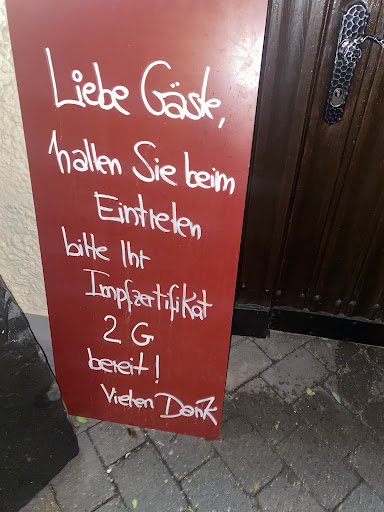 Liebe Gäste,
halten Sie beim
Eintreten
bitte Ihr
Impfzertifikat
2 G
bereit!
Vielen Dank